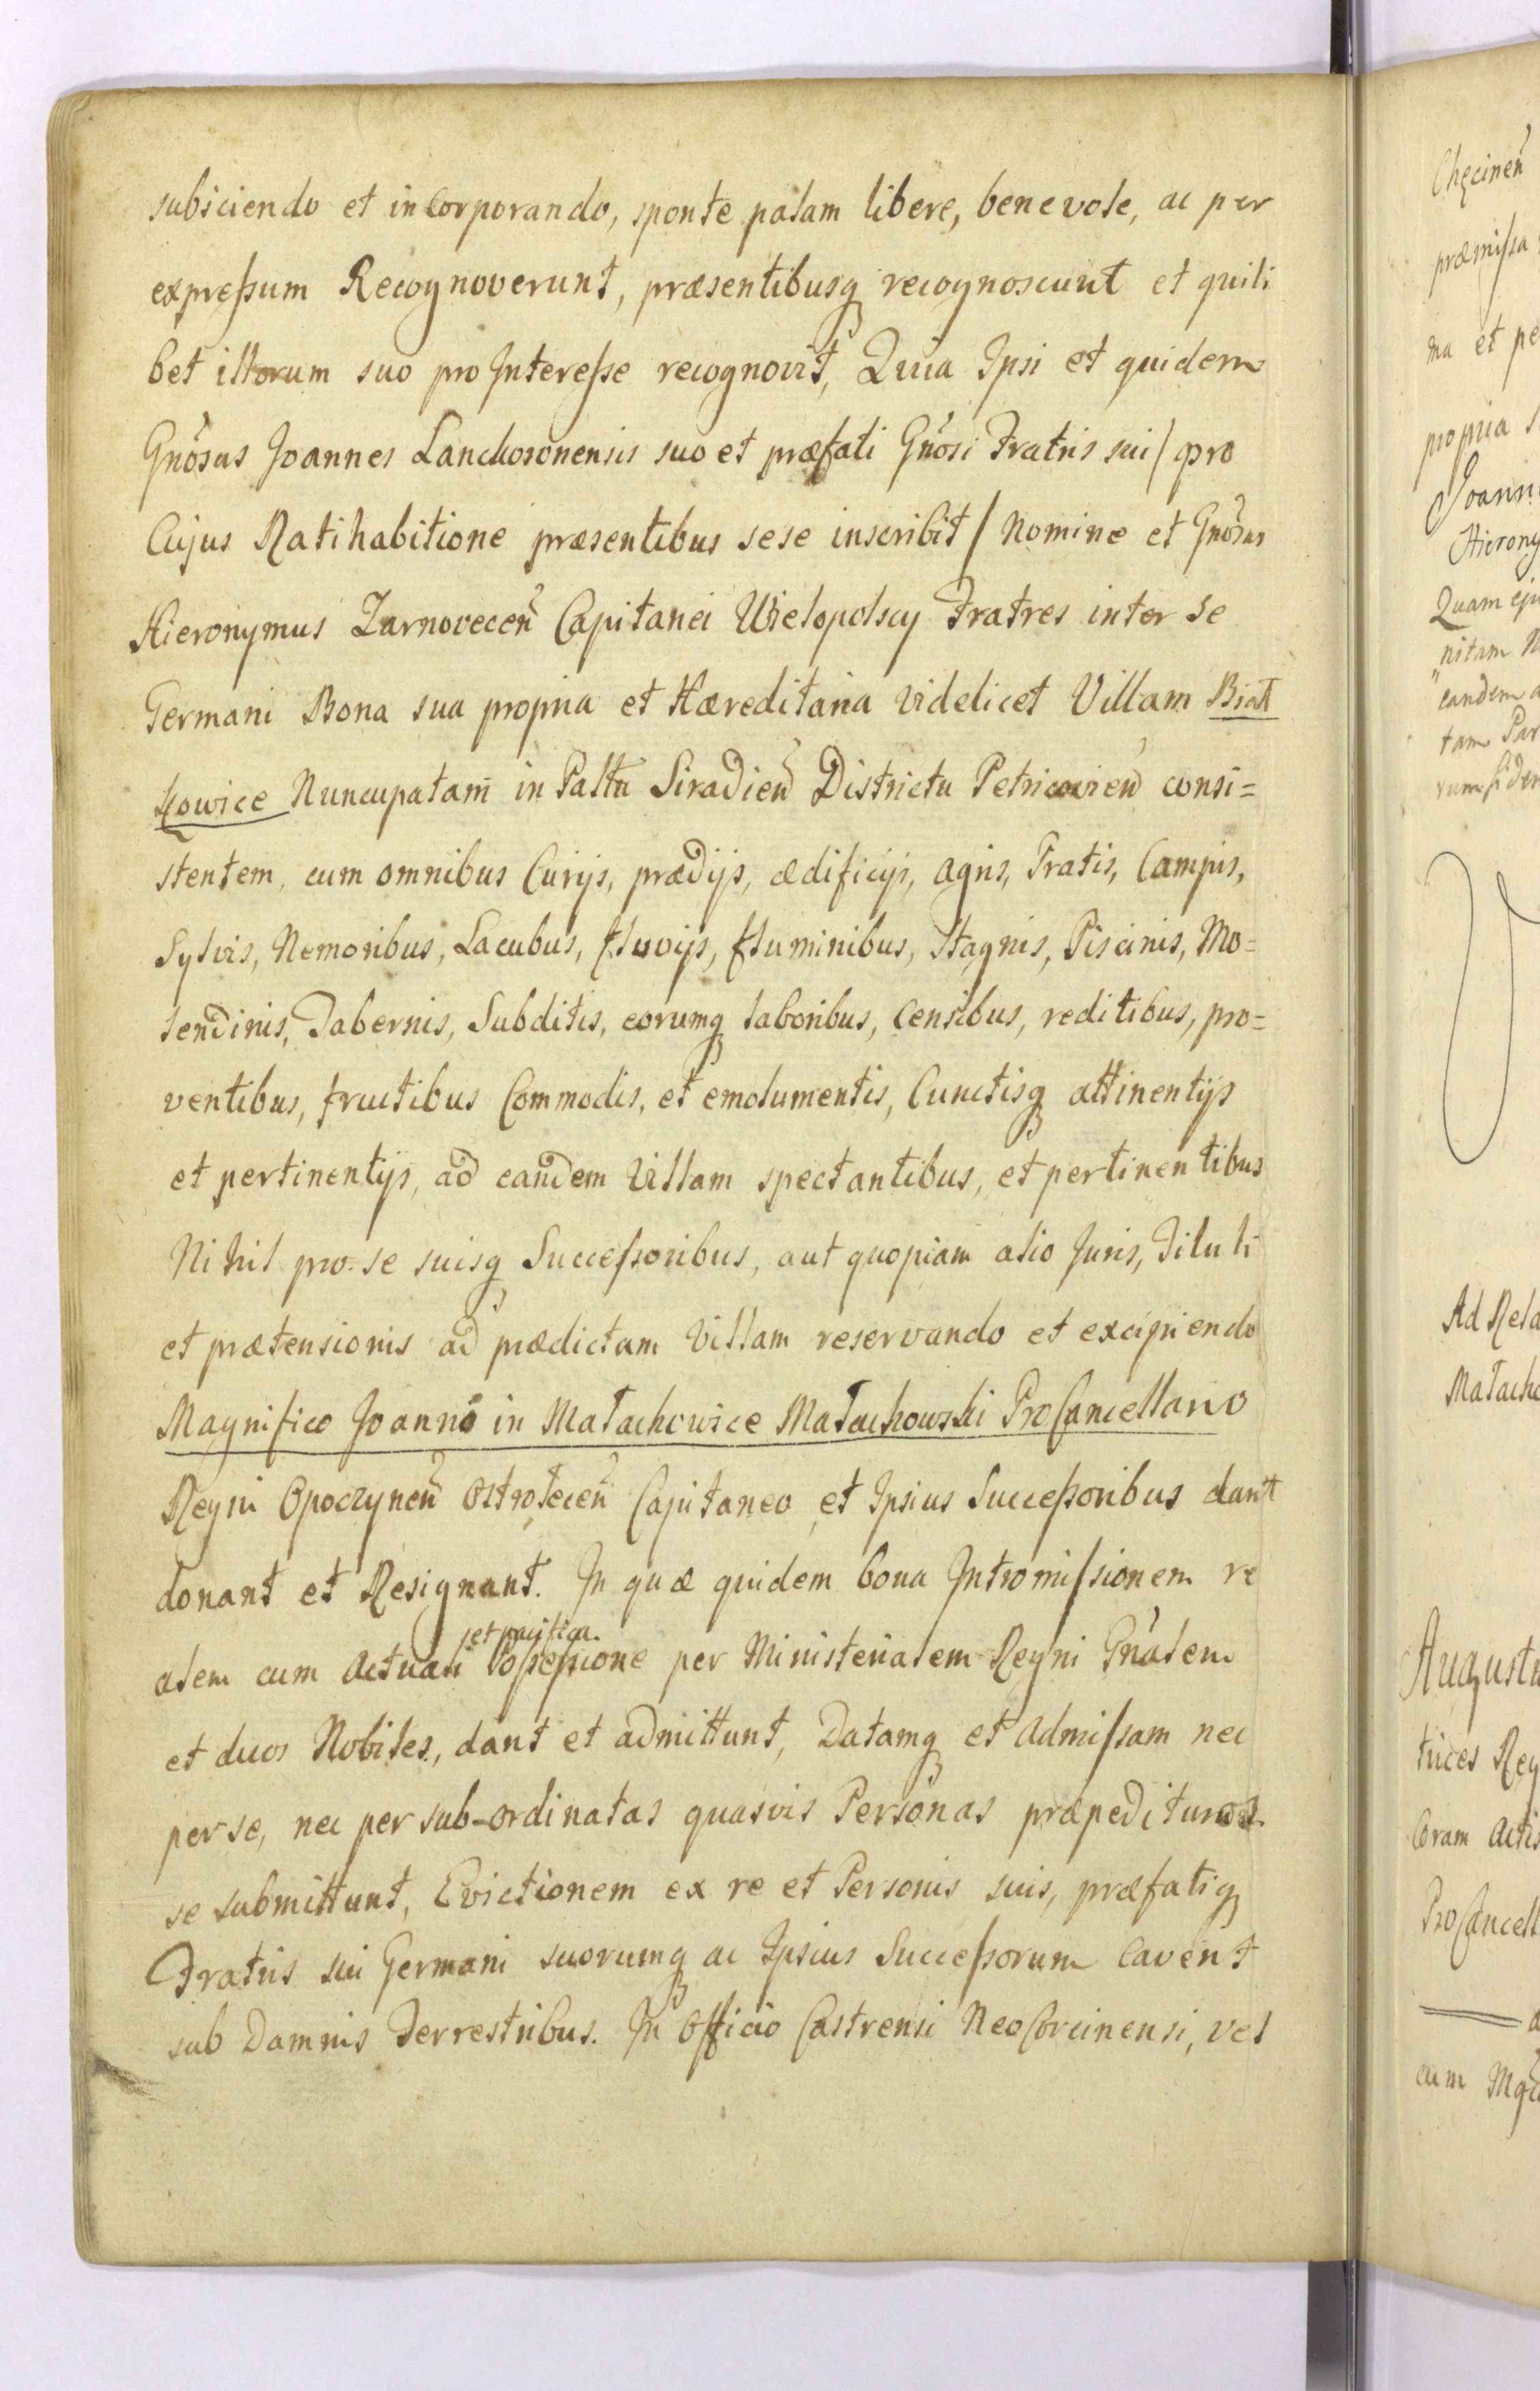 subiciendo et incorporando, sponte palam libere, benevole, ac per
expressum Recognoverunt, præsentibusq recognoscunt et quili
bet illorum suo pro Interesse recognovit, Quia Ipsi et quidem
Gnosus Joannes Lanckoronensis suo et præfati Gnosi Fratris sui / pro
Cujus Ratihabitione præsentibus sese inscribit / Nomine et Gnosus
Hieronymus Zarnovecen Capitanei Wielopolscy Fratres inter se
Germani Bona sua propria et Hæreditaria videlicet Villam Biał
kowice Nuncupatam in Palttu Siradien Districtu Petricovien consi=
stentem, cum omnibus Curijs, prædijs, ædificijs, agris, Pratis, Campis,
Sylvis, Nemoribus, Lacubus, fluvijs, fluminibus, Stagnis, Piscinis, Mo=
lendinis, Tabernis, Subditis, eorumq laboribus, Censibus, reditibus, pro=
ventibus, fructibus Commodis, et emolumentis, Cunctisq attinentijs
et pertinentijs, ad eandem Villam spectantibus, et pertinentibus
Nihil pro se suisq Successoribus, aut quopiam alio Juris, Tituli
et prætensionis ad prædictam Villam reservando et excipiendo
Magnifico Joanni in Małachowice Małachowski ProCancellario
Regni Opoczynen Ostrołecen Capitaneo et Ipsius Successoribus dant
donant et Resignant. In quæ quidem bona Intromissionem re
et pacifica
alem cum actuali Possessione per Ministerialem Regni Gnalem
et duos Nobiles, dant et admittunt, Datamq et admissam nec
per se, nec per sub-ordinatas quasvis Personas præpedituros
se submittunt, Evictionem ex re et Personis suis, præfatiq
Fratris sui Germani suorumq ac Ipsius Successorum Cavent
sub Damnis Terrestribus. In Officio Castrensi NeoCorcinensi, vel
Chęcinen
præmissa
ma et pe
propria s
Joann
Hierony
Quam eju
nitam
eandem a
tam Par
rum fidem
Ad Rela
Małacho
Augustu
trices Reg
Coram Actis
ProCancell
cum